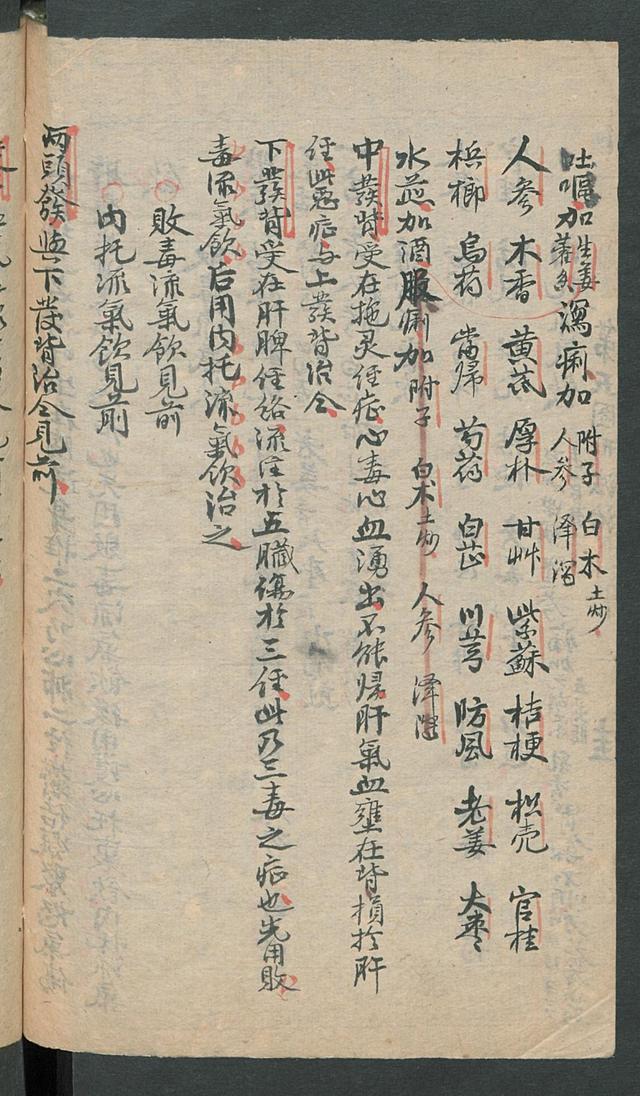 吐嗎加生姜藿魚瀉痢加附子人參白木土炒澤瀉
人參木香黄芪厚朴甘艸紫蘇桔梗枳壳官桂
梹榔烏药當歸芍药白芷川芎防風老姜大棗
水煎加酒服痢加附子白术土炒人參澤瀉
中發背受在拖灵徑症心毒心血湧出不能歸肝氣血壅在背損於肝
徑此惡症与上發背治仝
下發背受在肝脾徑絡流注於五臟傷於三徑此乃三毒之症也先用敗
毒流氣飲后用内托流氣飲治之
敗毒流氣飲見前
内托流氣飲見前
兩頭發與下發背治仝見前